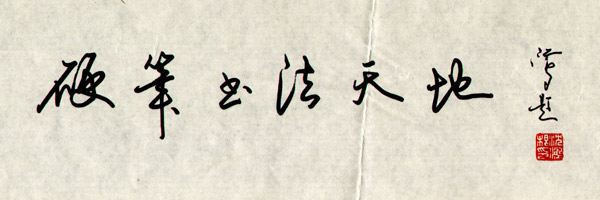 硬筆书法天地
题